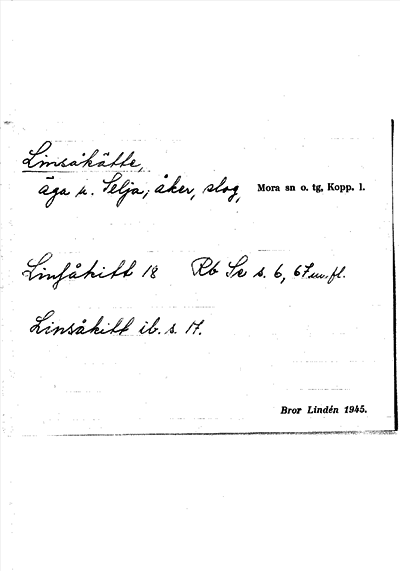 Linsåkätte,
äga u. Selja; åker, slog, Mora sn o. tg, Kopp. l.
Linsåkitt 18 Rb Se s. 6, 67 m. fl.
Linsåkitt ib. s. 17.
Bror Lindén 1945.